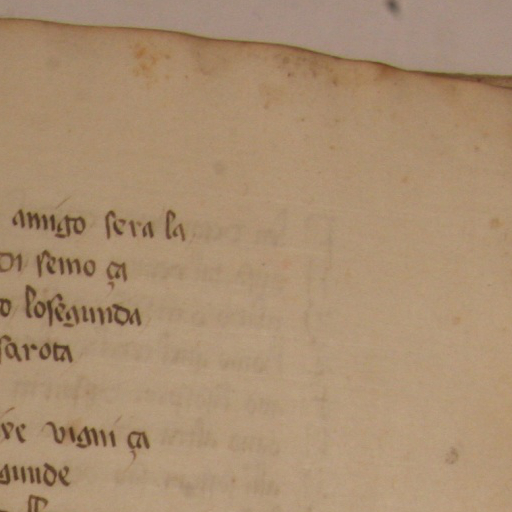 amigo sera la
di semo ça
o losegunda
sarota
xe vigni ça
gunde